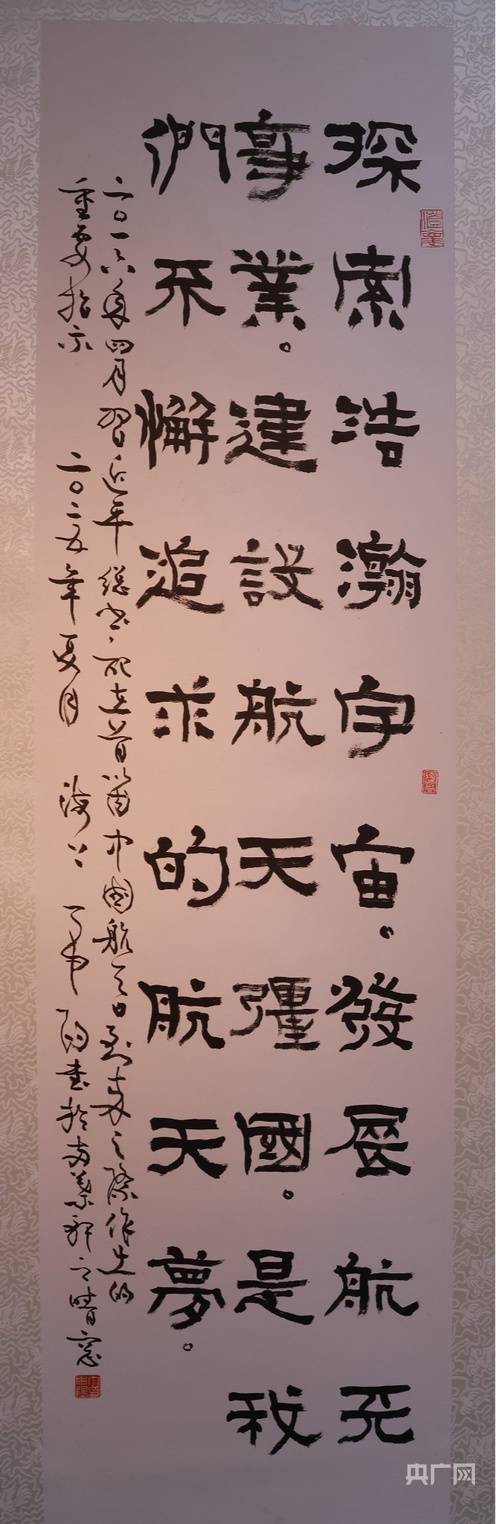 探索浩瀚宇宙。發展航天
事業。建設航天彊國。是我
們不懈追求的航天夢。
二〇一六年四月習近平總書記在首個中國航天日到來之際作出的
重要指示 二〇二五年夏月 海上 書於 晴窗
央广网